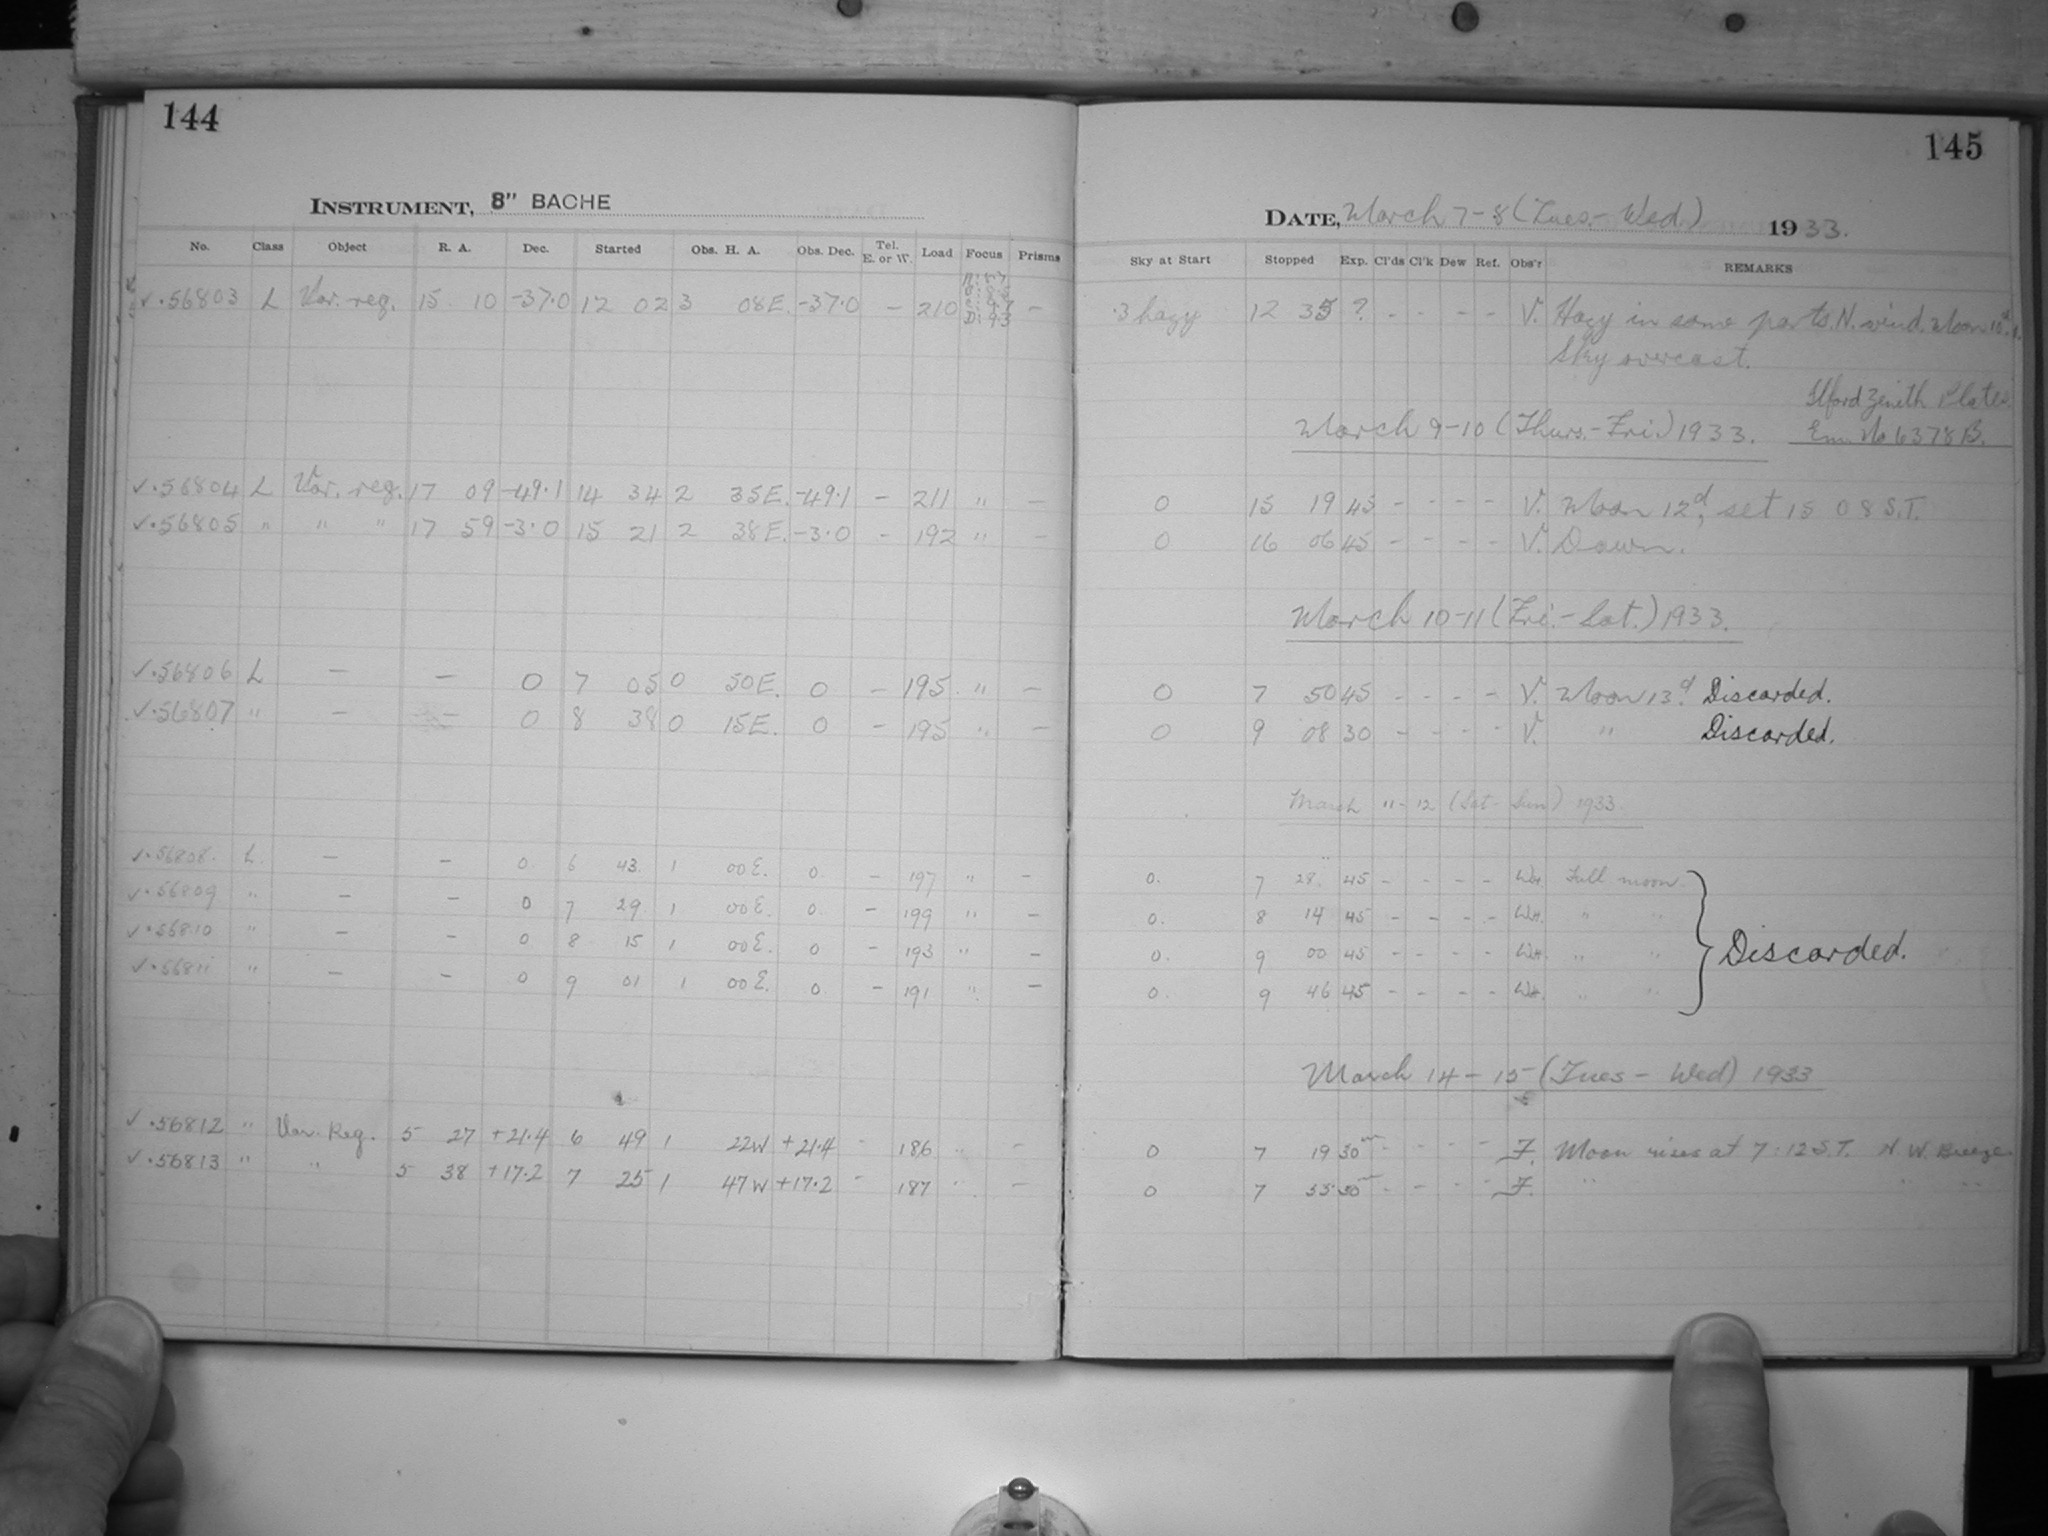 144
INSTRUMENT, 8" BACHE
No. Class Object R. A. Dec. Started Obs. H. A. Obs. Dec. Tel. E. or W. Load Focus Prisms
✓.56803 L Var. reg. 15 10 -37.0 12 02 3 08E. -37.0 - 210 -
✓.56804 L Var. reg. 17 09 -49.1 14 34 2 35E. -49.1 - 211 " -
✓.56805 " " " 17 59 -3.0 15 21 2 38E. -3.0 - 192 " -
✓.56806 L - - 0 7 05 0 50E. 0 - 195 " -
✓.56807 " - - 0 8 38 0 15E. 0 - 195 " -
✓.56808. L. - - 0. 6 43. 1 00E. 0. - 197 " -
✓.56809 " - - 0 7 29 1 00E. 0. - 199 " -
✓.56810 " - - 0 8 15 1 00E. 0 - 193 " -
✓.56811 " - - 0 9 01 1 00E. 0. - 191 " -
✓.56812 " Var. Reg. 5 27 +21.4 6 49 1 22W +21.4 - 186 " -
✓.56813 " " 5 38 +17.2 7 25 1 47W +17.2 - 187 " -
145
DATE, March 7-8 (Tues.-Wed.) 1933.
Sky at Start Stopped Exp. Cl'ds Cl'k Dew Ref. Obs'r REMARKS
.3 hazy 12 35 ? - - - - V. Hazy in some parts. N. wind. Moon 10d.
Sky overcast.
Ilford Zenith Plates.
March 9-10 (Thurs.-Fri.) 1933. Em. No 6378B.
0 15 19 45 - - - - V. Moon 12d, set 15 08 S.T.
0 16 06 45 - - - - V. Dawn.
March 10-11 (Fri.-Sat.) 1933.
0 7 50 45 - - - - V. Moon 13d. Discarded.
0 9 08 30 - - - - V. " Discarded.
March 11-12 (Sat-Sun) 1933.
0. 7 28. 45 - - - - WH. Full moon
0. 8 14 45 - - - - WH. " "
0. 9 00 45 - - - - WH. " " Discarded.
0. 9 46 45 - - - - WH. " "
March 14-15 (Tues - Wed) 1933
0 7 19 30m - - - - F. Moon rises at 7:12 S.T. N.W. Breeze
0 7 55 30m - - - - F. " " "